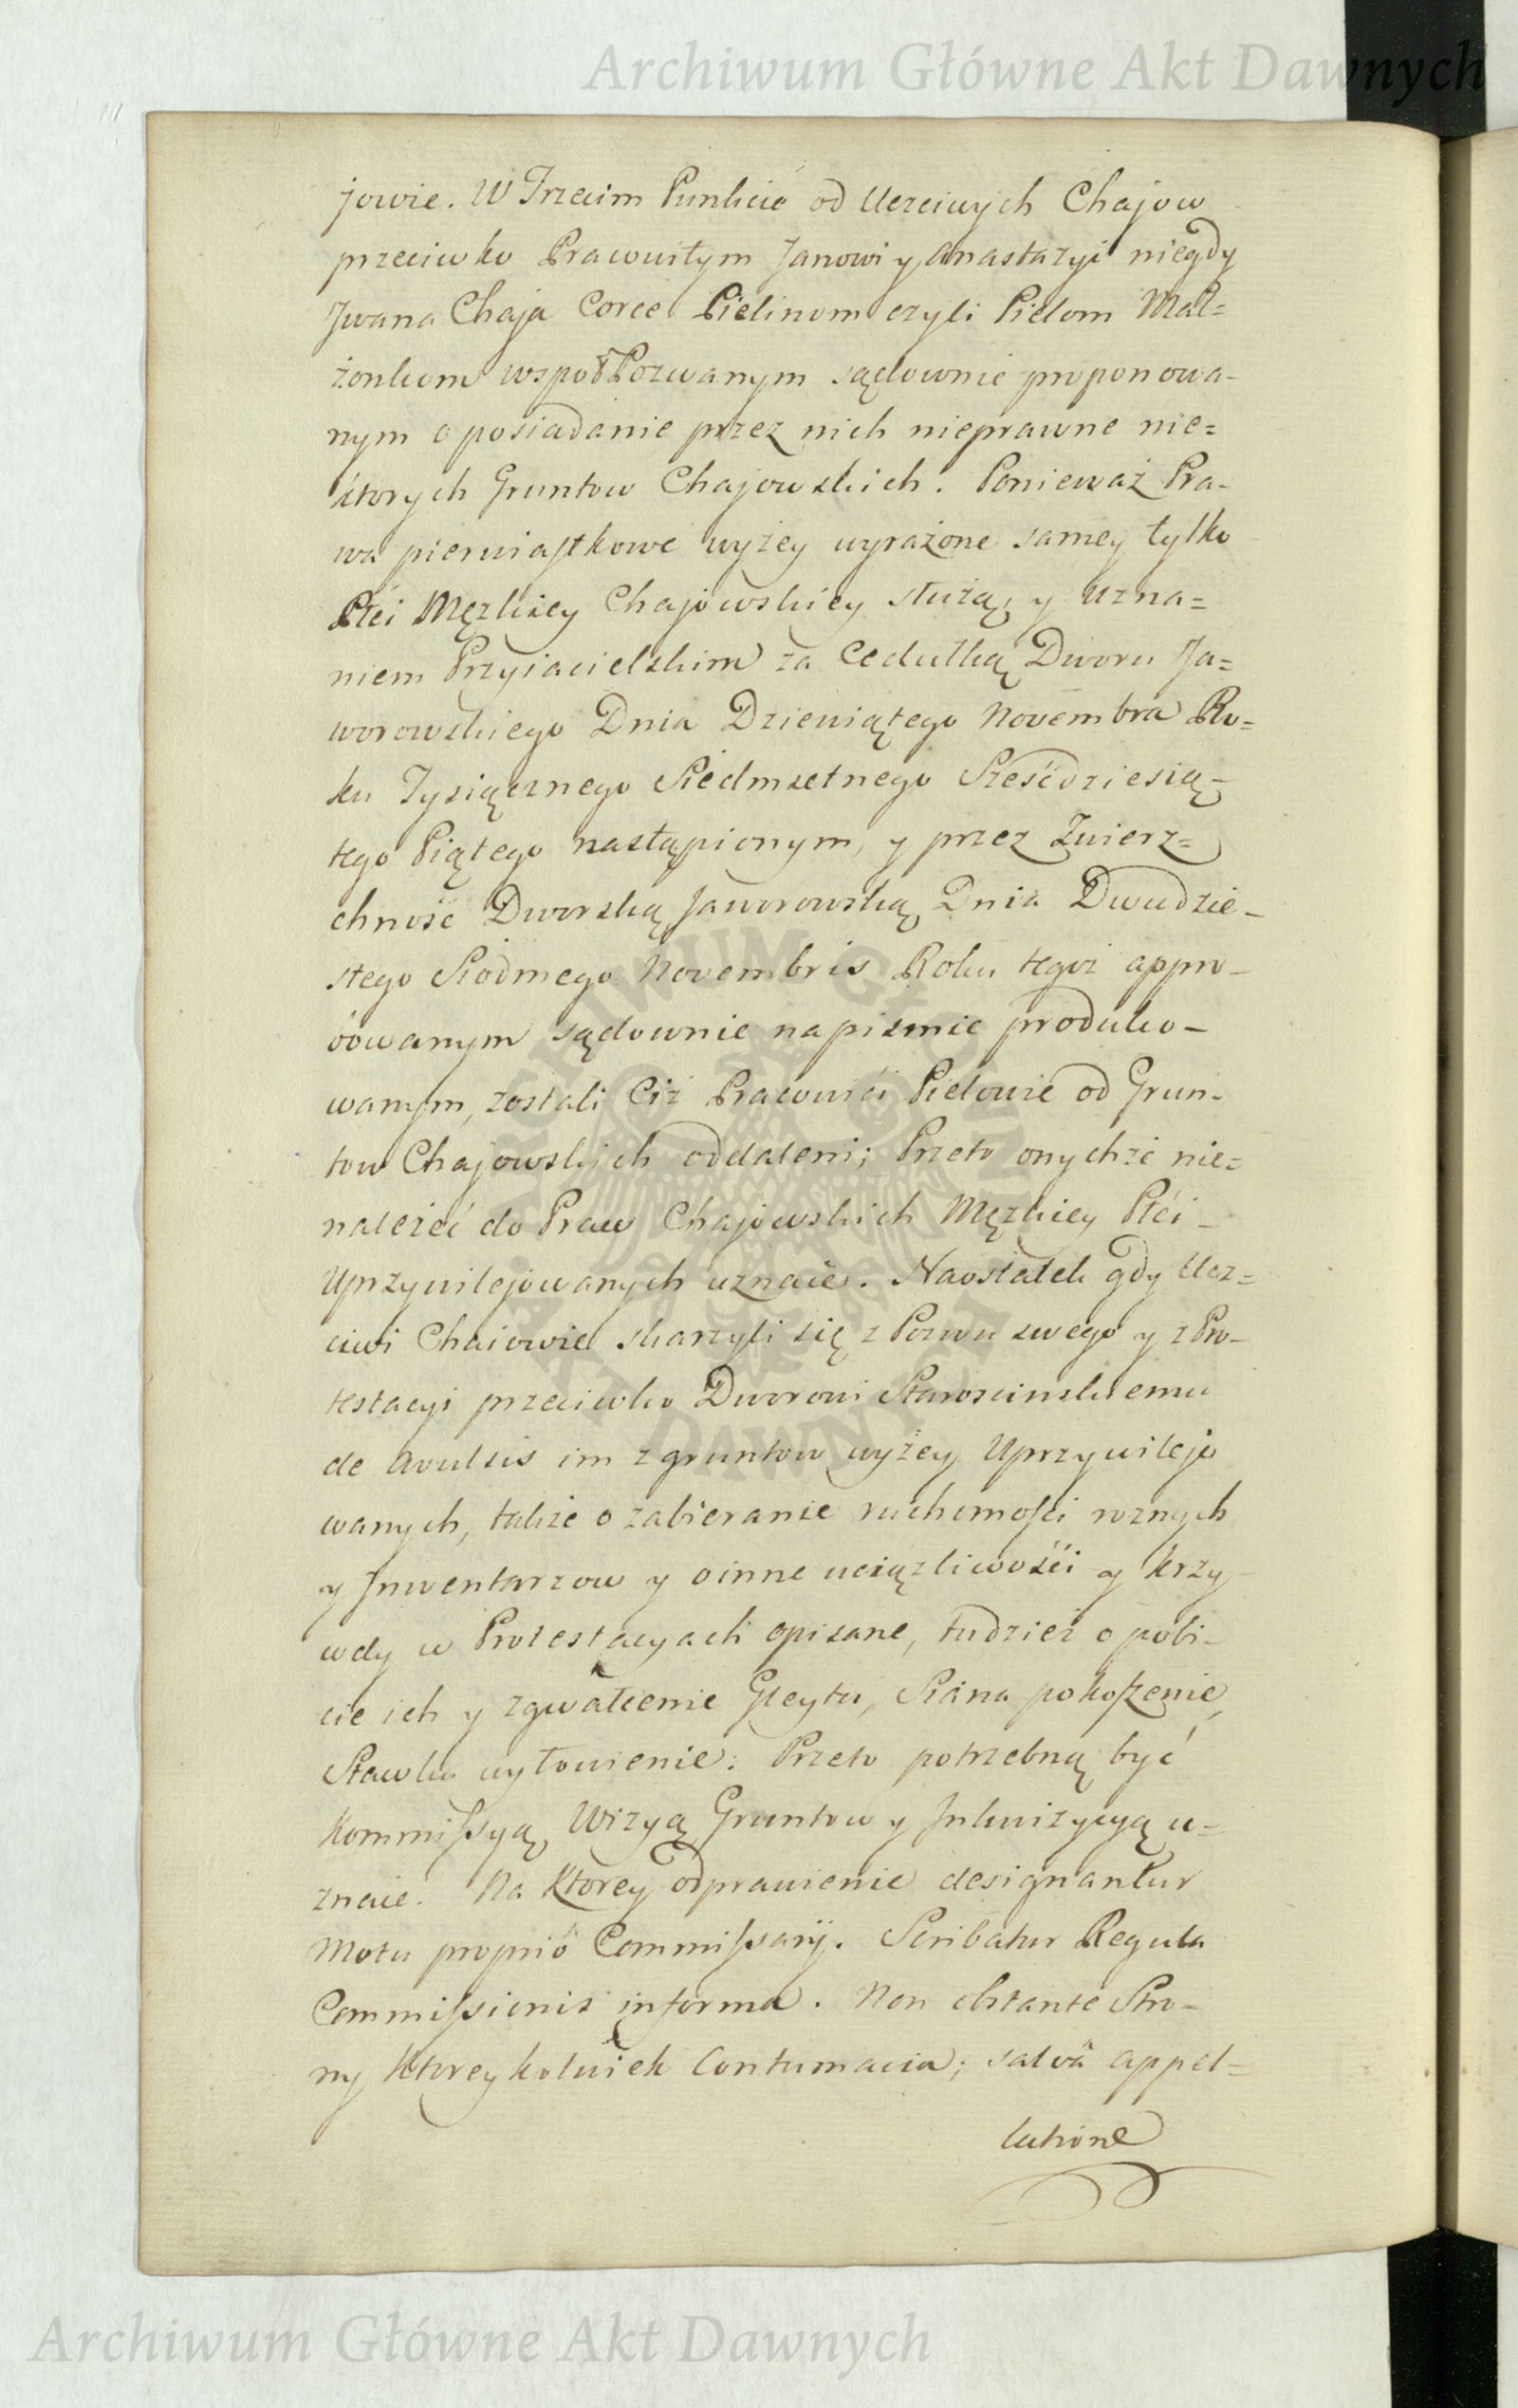 Archiwum Główne Akt Dawnych
jowie. W Trzecim Punkcie od Uczciwych Chajow
przeciwko Pracowitym Janowi y Anastazyi niegdy
Jwana Chaja Corce Pielinom czyli Pielom Mał=
żonkom wspołPozwanym sądownie proponowa-
nym o posiadanie przez nich nieprawne nie=
ktorych Gruntow Chajowskich. Ponieważ Pra-
wa pierwiastkowe wyżey wyrażone samey tylko
Płci Męzkiey Chajowskiey służą, y uzna=
niem Przyiacielskim za Cedułką Dworu Ja=
worowskiego Dnia Dziewiątego Novembra Ro=
ku Tysiącznego Siedmsetnego Sześćdziesią-
tego Piątego nastąpionym, y przez Zwierz=
chność Dworską Jaworowską Dnia Dwudzie-
stego Siodmego Novembris Roku tegoż appro-
bowanym sądownie na pismie produko-
wanym, zostali Ciż Pracowici Pielowie od Grun-
tow Chajowskich oddaleni; Przeto onychże nie=
należeć do Praw Chajowskich Męzkiey Płci -
Uprzywilejowanych uznaie. Naostatek gdy Ucz=
ciwi Chaiowie skarzyli się z Pozwu swego y z Pro-
testacyi przeciwko Dworowi Staroscinskiemu
de Avulsis im z gruntow wyżey Uprzywilejo
wanych, także o zabieranie ruchomości roznych
y Jnwentarzow y o inne uciążliwości y krzy-
wdy w Protestacyach opisane, tudzież o pobi-
cie ich y zgwałcenie Gleytu, Siana pokoszenie,
Stawku wyłowienie: Przeto potrzebną być
Kommissyą, Wizyą Gruntow y Jnkwizycyą u=
znaie. Na ktorey odprawienie designantur
Motu propriô Commissarij. Scribatur Regula
Commissionis in forma. Non obstante Stro-
ny ktoreykolwiek Contumacia; salvâ appel=
latione
Archiwum Główne Akt Dawnych